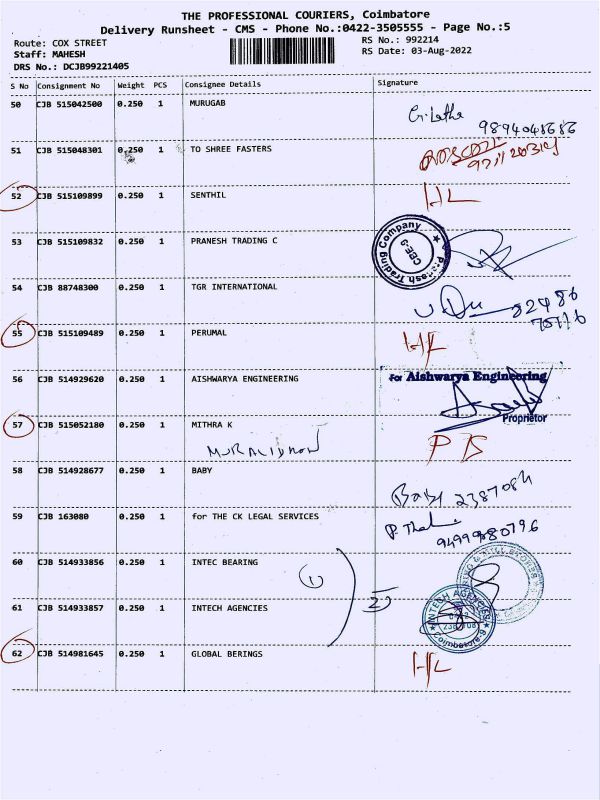 THE PROFESSIONAL COURIERS, Coimbatore
Delivery Runsheet - CMS - Phone No.:0422-3505555 - Page No.:5
Route: COX STREET
RS No.: 992214
Staff: MAHESH
RS Date: 03-Aug-2022
DRS No.: DCJB99221405
S No Consignment No Weight PCS Consignee Details Signature
50 CJB 515042500 0.250 1 MURUGAB
G. Latha
9894048686
51 CJB 515048301 0.250 1 TO SHREE FASTERS
52 CJB 515109899 0.250 1 SENTHIL HL
53 CJB 515109832 0.250 1 PRANESH TRADING C
Pranesh Trading Company
CBE-9
54 CJB 88748300 0.250 1 TGR INTERNATIONAL
55 CJB 515109489 0.250 1 PERUMAL HL
56 CJB 514929620 0.250 1 AISHWARYA ENGINEERING
For Aishwarya Engineering
Proprietor
57 CJB 515052180 0.250 1 MITHRA K
58 CJB 514928677 0.250 1 BABY
Baby 2387084
59 CJB 163080 0.250 1 for THE CK LEGAL SERVICES
9499980796
60 CJB 514933856 0.250 1 INTEC BEARING
1
61 CJB 514933857 0.250 1 INTECH AGENCIES
INTECH AGENCIES
Coimbatore-9
62 CJB 514981645 0.250 1 GLOBAL BERINGS HL